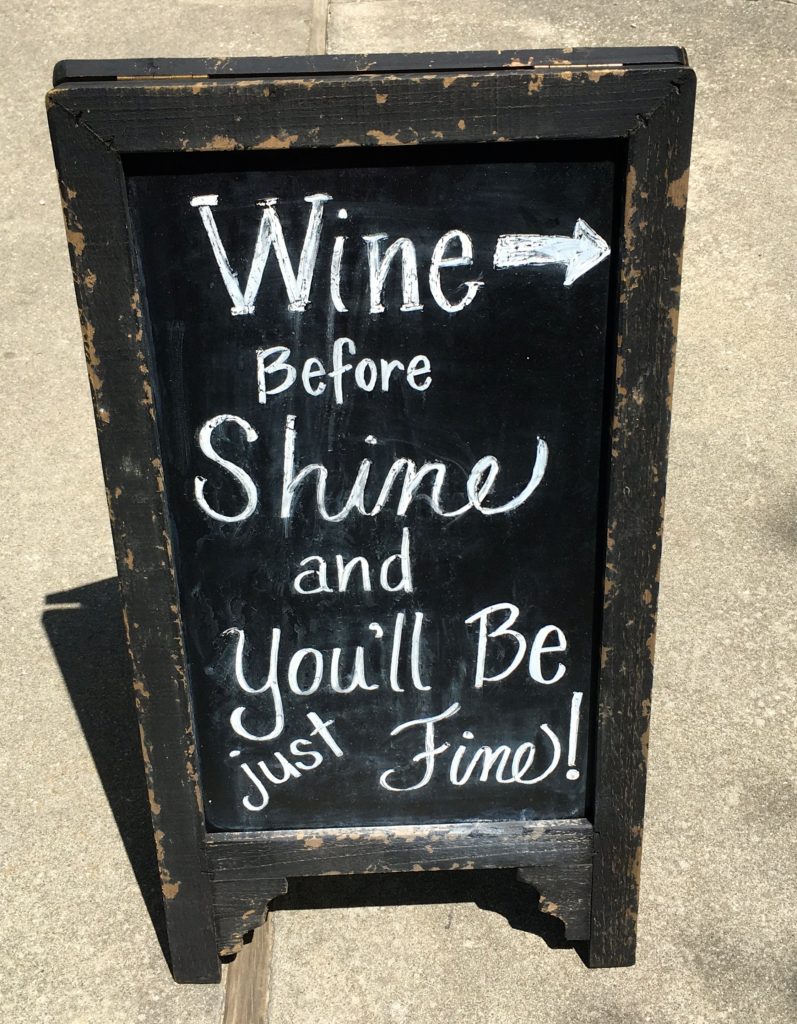 Wine
Before
Shine
and
You'll Be
just Fine!